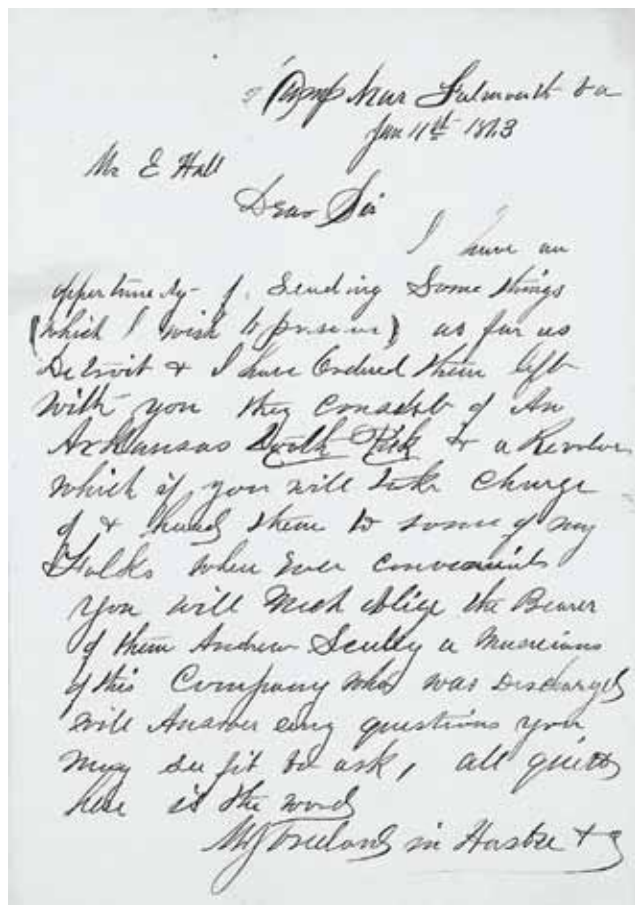 Camp Near Falmouth Va
Jan 11th 1863
Mr E Hall
Dear Sir
I have an
oppertunety of Sending Some things
(which I wish to preserve) as far as
Detroit & I have Ordered them left
with you they consist of An
Arkansas Tooth Pick & a Revolver
which if you will take charge
of & hand them to some of my
Folks when ever convenient
you will Much oblige the Bearer
of them Andrew Scully a Musician
of this Company who was Discharged
will Answer any questions you
may see fit to ask, all quiet
here is the word
in Haste